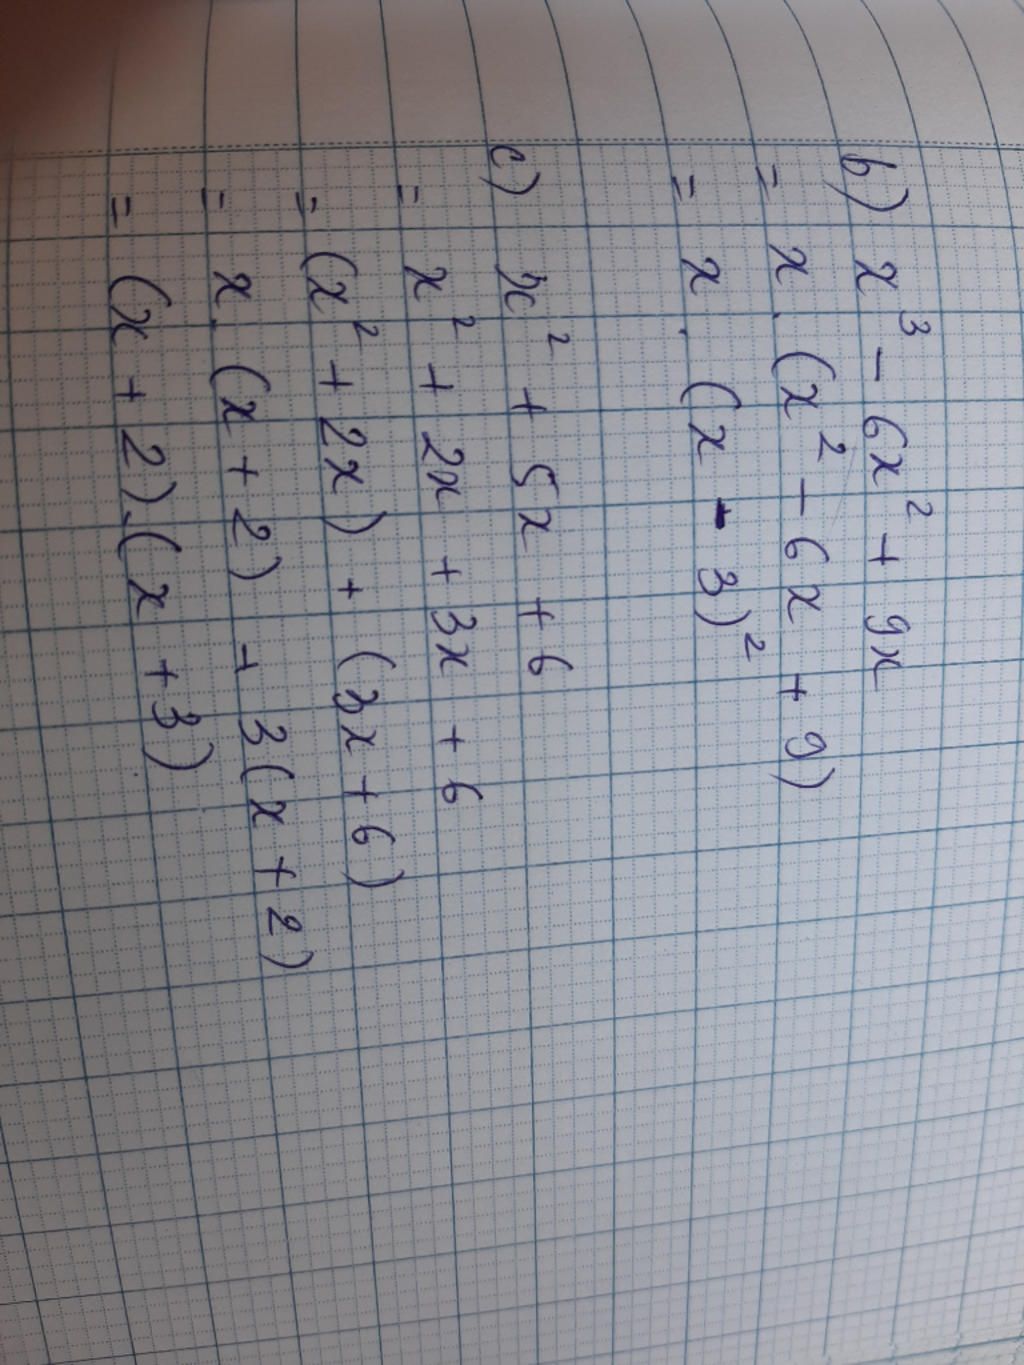 b) x³ - 6x² + 9x
= x . (x² - 6x + 9)
= x . (x - 3)²
c) x² + 5x + 6
= x² + 2x + 3x + 6
= (x² + 2x) + (3x + 6)
= x . (x + 2) + 3(x + 2)
= (x + 2).(x + 3)